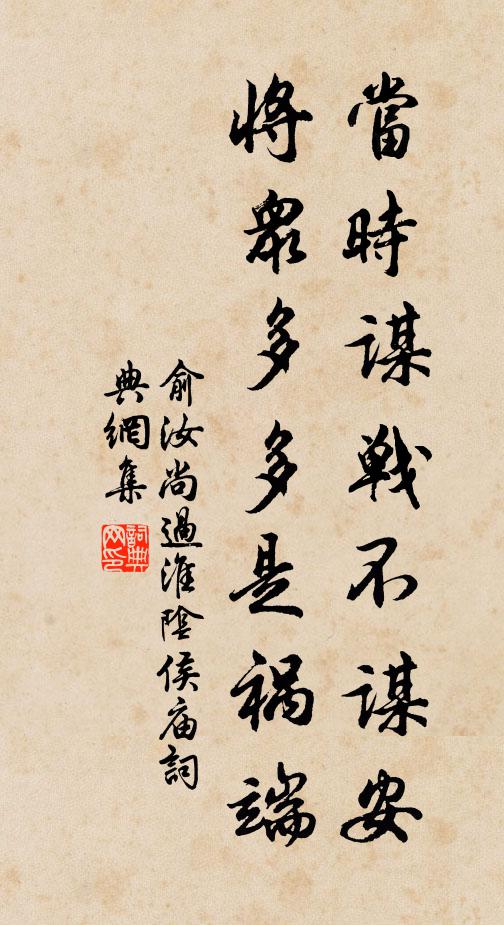 當時謀戰不謀安
將眾多多是禍端
俞汝尚過淮陰侯庙詞
典網集
詞典網印